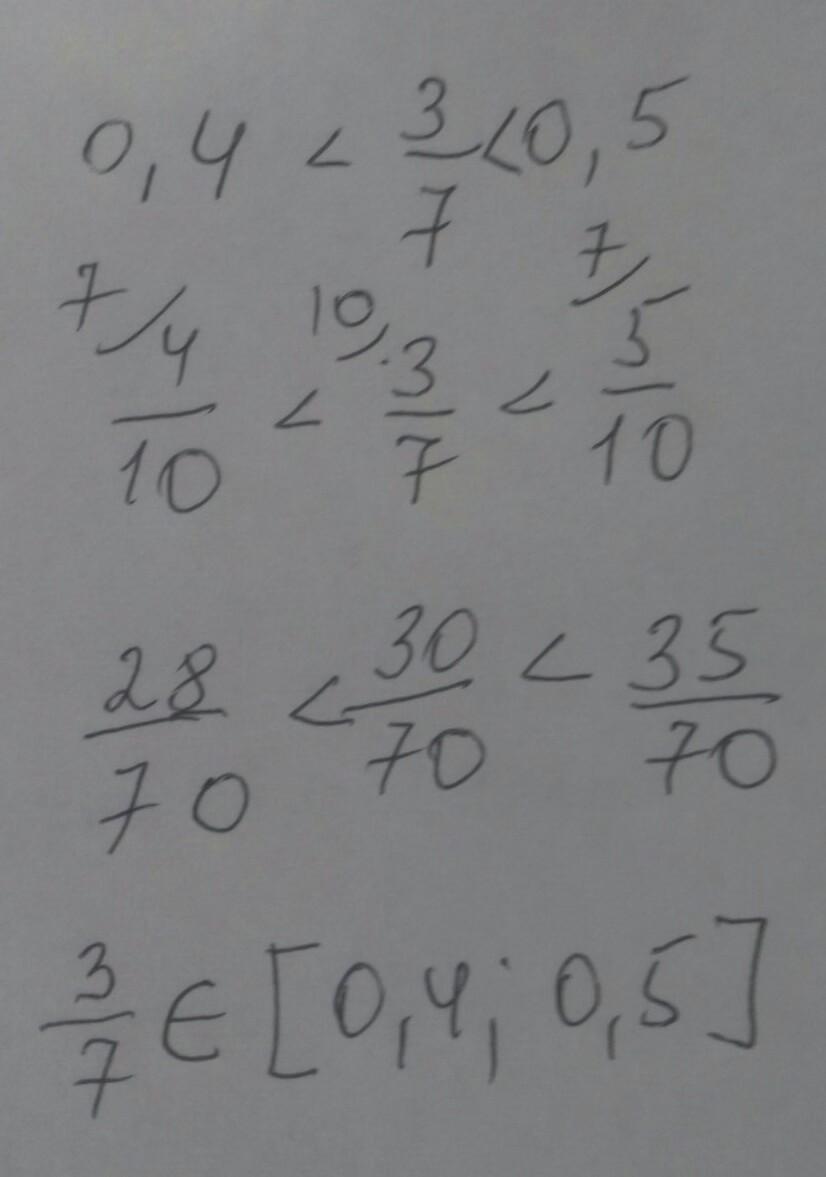 0,4 < 3/7 < 0,5
7/ 4/10 < 10/ 3/7 < 7/ 5/10
28/70 < 30/70 < 35/70
3/7 ∈ [0,4; 0,5]